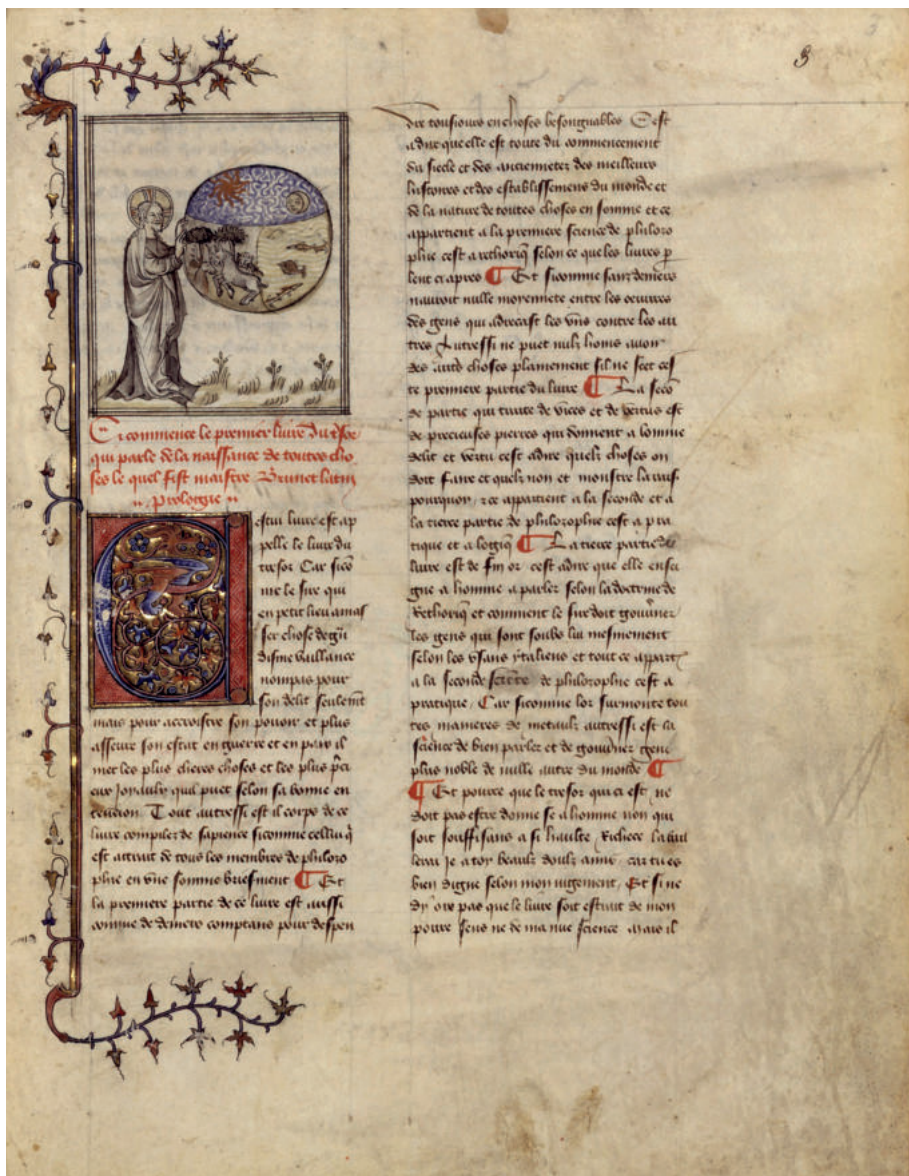 3
Ci commence le premier livre du tresor
qui parle de la naissance de toutes cho
ses le quel fist maistre Brunet latin
Prologue
Cestui livre est ap
pelle le livre du
tresor Car sicom
me le sire qui
en petit lieu amas
ser chose de
disme vaillance
non pas pour
son delit seulemt
mais pour accroistre son povoir et plus
asseure son estat en guerre et en paix il
met les plus chieres choses et les plus pci
eux joyaulx quil puet selon sa bonne en
tencion Tout autressi est il corps de ce
livre compiler de sapience sicomme cellui q
est attrait de tous les membres de philozo
phie en une somme briefment ¶ Et
la premiere partie de ce livre est aussi
comme de deniers comptans pour despen
dre tousiours en choses besongnables Cest
a dire que elle est toute du commencement
du siecle et des anciennetez des meilleurs
histoires et des establissemens du monde et
de la nature de toutes choses en somme et ce
appartient a la premiere science de philozo
phie cest a rethoriq selon ce que les livres p
lent ci apres ¶ Et sicomme sanz deniers
nauroit nulle moyennete entre les oeuvres
des gens qui adrecast les uns contre les au
tres Autressi ne puet nulz homs avoir
des autres choses plainement sil ne scet ces
te premiere partie du livre ¶ La secon
de partie qui traite de vices et de vertus est
de precieuses pierres qui donnent a homme
delit et vertu cest a dire quelz choses on
doit faire et quelz non et monstre la rais
pourquoy et ce appartient a la seconde et a
la tierce partie de philozophie cest a pra
tique et a logiq ¶ La tierce partie du
livre est de fin or cest a dire que elle ensei
gne a homme a parler selon la doctrine de
Rethoriq et comment le sire doit gouvner
les gens qui sont soubz lui mesmement
selon les usans ytaliens et tout ce appart
a la seconde science de philozophie cest a
pratique Car sicomme lor surmonte tou
tes manieres de metaulx autressi est la
science de bien parler et de gouvner gens
plus noble de nulle autre du monde ¶
¶ Et pource que le tresor qui ci est ne
doit pas estre donne se a homme non qui
soit souffisans a si haulte Richece la bail
lerai je a toy beaulx doulx amis car tu es
bien digne selon mon jugement Et si ne
dy ore pas que le livre soit estrait de mon
povre sens ne de ma nue science mais il